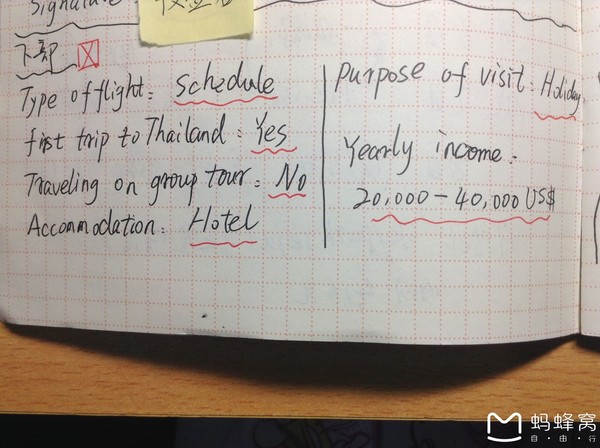 Signature:
下部
Type of flight: Schedule
first trip to Thailand: Yes
Traveling on group tour: No
Accommodation: Hotel
purpose of visit: Holiday.
Yearly income:
20,000-40,000 US$
蚂蜂窝
自·由·行